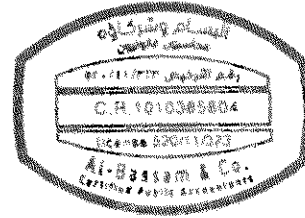 البسام وشركاؤه
محاسبون قانونيون
C.R.1010385804
License 520/11/323
Al-Bassam & Co.
Certified Public Accountants